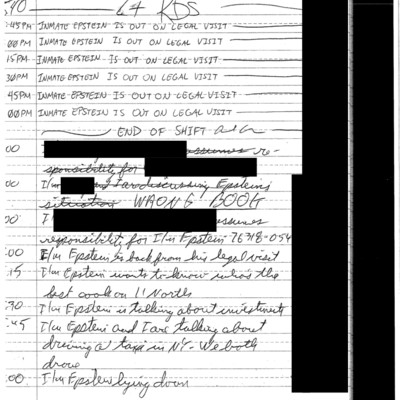 :45PM INMATE EPSTEIN IS OUT ON LEGAL VISIT
:00PM INMATE EPSTEIN IS OUT ON LEGAL VISIT
:15PM INMATE EPSTEIN IS OUT ON LEGAL VISIT
:30PM INMATE EPSTEIN IS OUT ON LEGAL VISIT
:45PM INMATE EPSTEIN IS OUT ON LEGAL VISIT
:00PM INMATE EPSTEIN IS OUT ON LEGAL VISIT
END OF SHIFT
:00 assumes re-
sponsibility for
:00 I/m and I are discussing Epstein's
situation WRONG BOOK
:00 I assumes
responsibility for I/m Epstein-76318-054
:00 I/m Epstein is back from his legal visit
:15 I/m Epstein wants to know who's the
best cook on 11 North
:30 I/m Epstein is talking about investments
:45 I/m Epstein and I are talking about
driving a taxi in NY. We both
drove
:00 I/m Epstein lying down